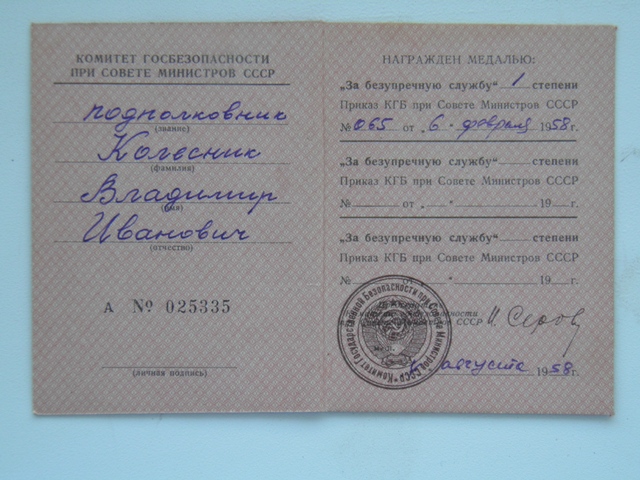 КОМИТЕТ ГОСБЕЗОПАСНОСТИ
ПРИ СОВЕТЕ МИНИСТРОВ СССР
подполковник
(звание)
Колесник
(фамилия)
Владимир
(имя)
Иванович
(отчество)
А № 025335
(личная подпись)
НАГРАЖДЕН МЕДАЛЬЮ:
„За безупречную службу“ 1 степени
Приказ КГБ при Совете Министров СССР
№ 065 от „6“ февраля 1958 г.
„За безупречную службу“ степени
Приказ КГБ при Совете Министров СССР
№ от „ “ 19 г.
„За безупречную службу“ степени
Приказ КГБ при Совете Министров СССР
№ “ 19 г.
Министров СССР И. Серов
августа 1958 г.
Комитет Государственной Безопасности при Совете Министров СССР